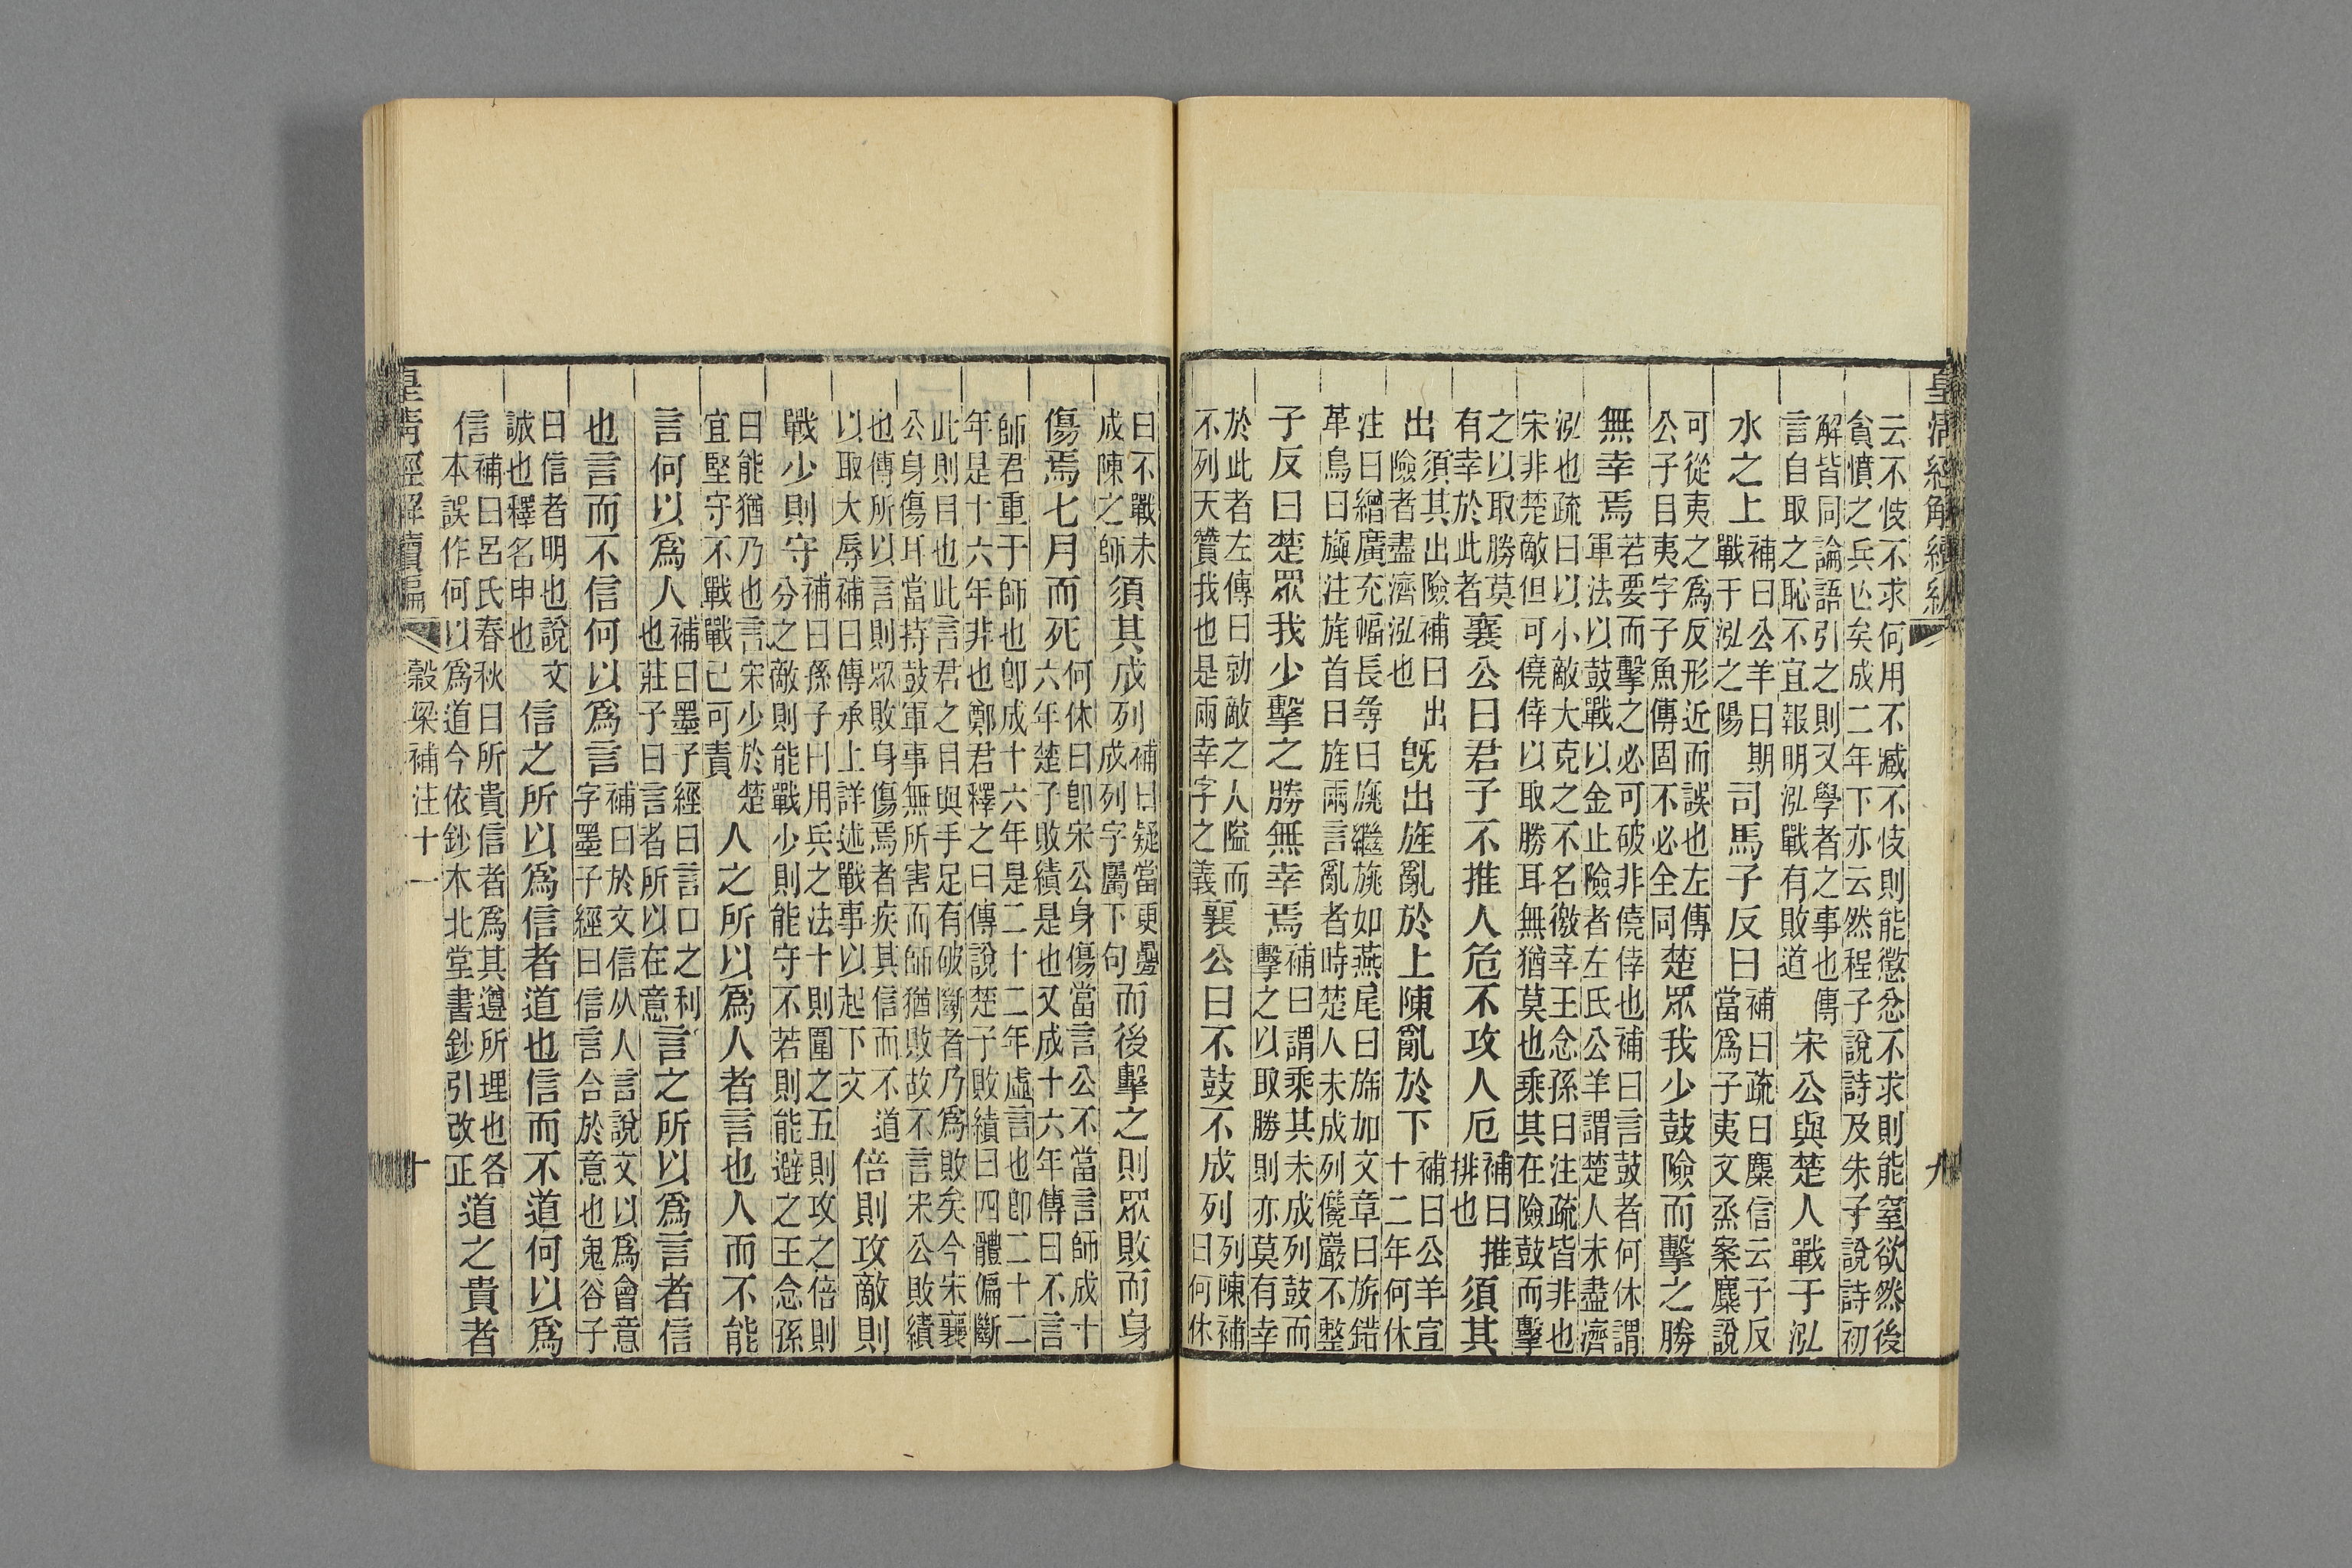 皇清經解續編 九
云不忮不求何用不臧不忮則能懲忿不求則能窒欲然後
貪憤之兵亡矣成二年下亦云然程子說詩及朱子說詩初
解皆同論語引之則又學者之事也傳
言自取之恥不宜報明泓戰有敗道
宋公與楚人戰于泓
水之上
補曰公羊曰期
戰于泓之陽
司馬子反曰
補曰疏曰麋信云子反
當爲子夷文烝案麋說
可從夷之爲反形近而誤也左傳
公子目夷字子魚傳固不必全同
楚眾我少鼓險而擊之勝
無幸焉
若要而擊之必可破非僥倖也補曰言鼓者何休謂
軍法以鼓戰以金止險者左氏公羊謂楚人未盡濟
泓也疏曰以小敵大克之不名徼幸王念孫曰注疏皆非也
宋非楚敵但可僥倖以取勝耳無猶莫也乘其在險鼓而擊
之以取勝莫
有幸於此者
襄公曰君子不推人危不攻人厄
補曰推
排也
須其
出
須其出險補曰出
險者盡濟泓也
旣出旌亂於上陳亂於下
補曰公羊宣
十二年何休
注曰繒廣充幅長尋曰旐繼旐如燕尾曰旆加文章曰旂錯
革鳥曰旟注旄首曰旌兩言亂者時楚人未成列儳巖不整
子反曰楚眾我少擊之勝無幸焉
補曰謂乘其未成列鼓而
擊之以取勝則亦莫有幸
於此者左傳曰勍敵之人隘而
不列天贊我也是兩幸字之義
襄公曰不鼓不成列
列陳補
曰何休
曰不戰未
成陳之師
須其成列
補曰疑當更疊
成列字屬下句
而後擊之則眾敗而身
傷焉七月而死
何休曰卽宋公身傷當言公不當言師成十
六年楚子敗績是也又成十六年傳曰不言
師君重于師也卽成十六年是二十二年虛言也卽二十二
年是十六年非也鄭君釋之曰傳說楚子敗績曰四體偏斷
此則目也此言君之目與手足有破斷者乃爲敗矣今宋襄
公身傷耳當持鼓軍事無所害而師猶敗故不言宋公敗績
也傳所以言則眾敗身傷焉者疾其信而不道
以取大辱補曰傳承上詳述戰事以起下文
倍則攻敵則
戰少則守
補曰孫子曰用兵之法十則圍之五則攻之倍則
分之敵則能戰少則能守不若則能避之王念孫
曰能猶乃也言宋少於楚
宜堅守不戰戰已可責
人之所以爲人者言也人而不能
言何以爲人
補曰墨子經曰言口之利
也莊子曰言者所以在意
言之所以爲言者信
也言而不信何以爲言
補曰於文信从人言說文以爲會意
字墨子經曰信言合於意也鬼谷子
曰信者明也說文
誠也釋名申也
信之所以爲信者道也信而不道何以爲
信
補曰呂氏春秋曰所貴信者爲其遵所理也各
本誤作何以爲道今依鈔本北堂書鈔引改正
道之貴者
皇清經解續編 穀梁補注十一 十